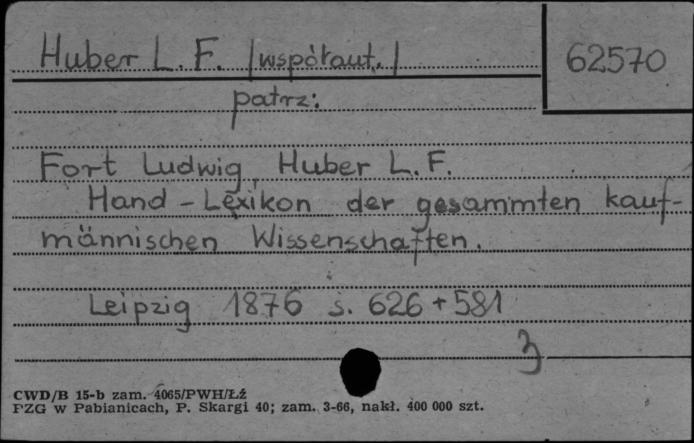 Huber L. F. /współaut./
62570
patrz:
Fort Ludwig, Huber L. F.
Hand-Lexikon der gesammten kauf-
männischen Wissenschaften.
Leipzig 1876 s. 626+581
3
CWD/B 15-b zam. 4065/PWH/Łź
PZG w Pabianicach, P. Skargi 40; zam. 3-66, nakł. 400 000 szt.